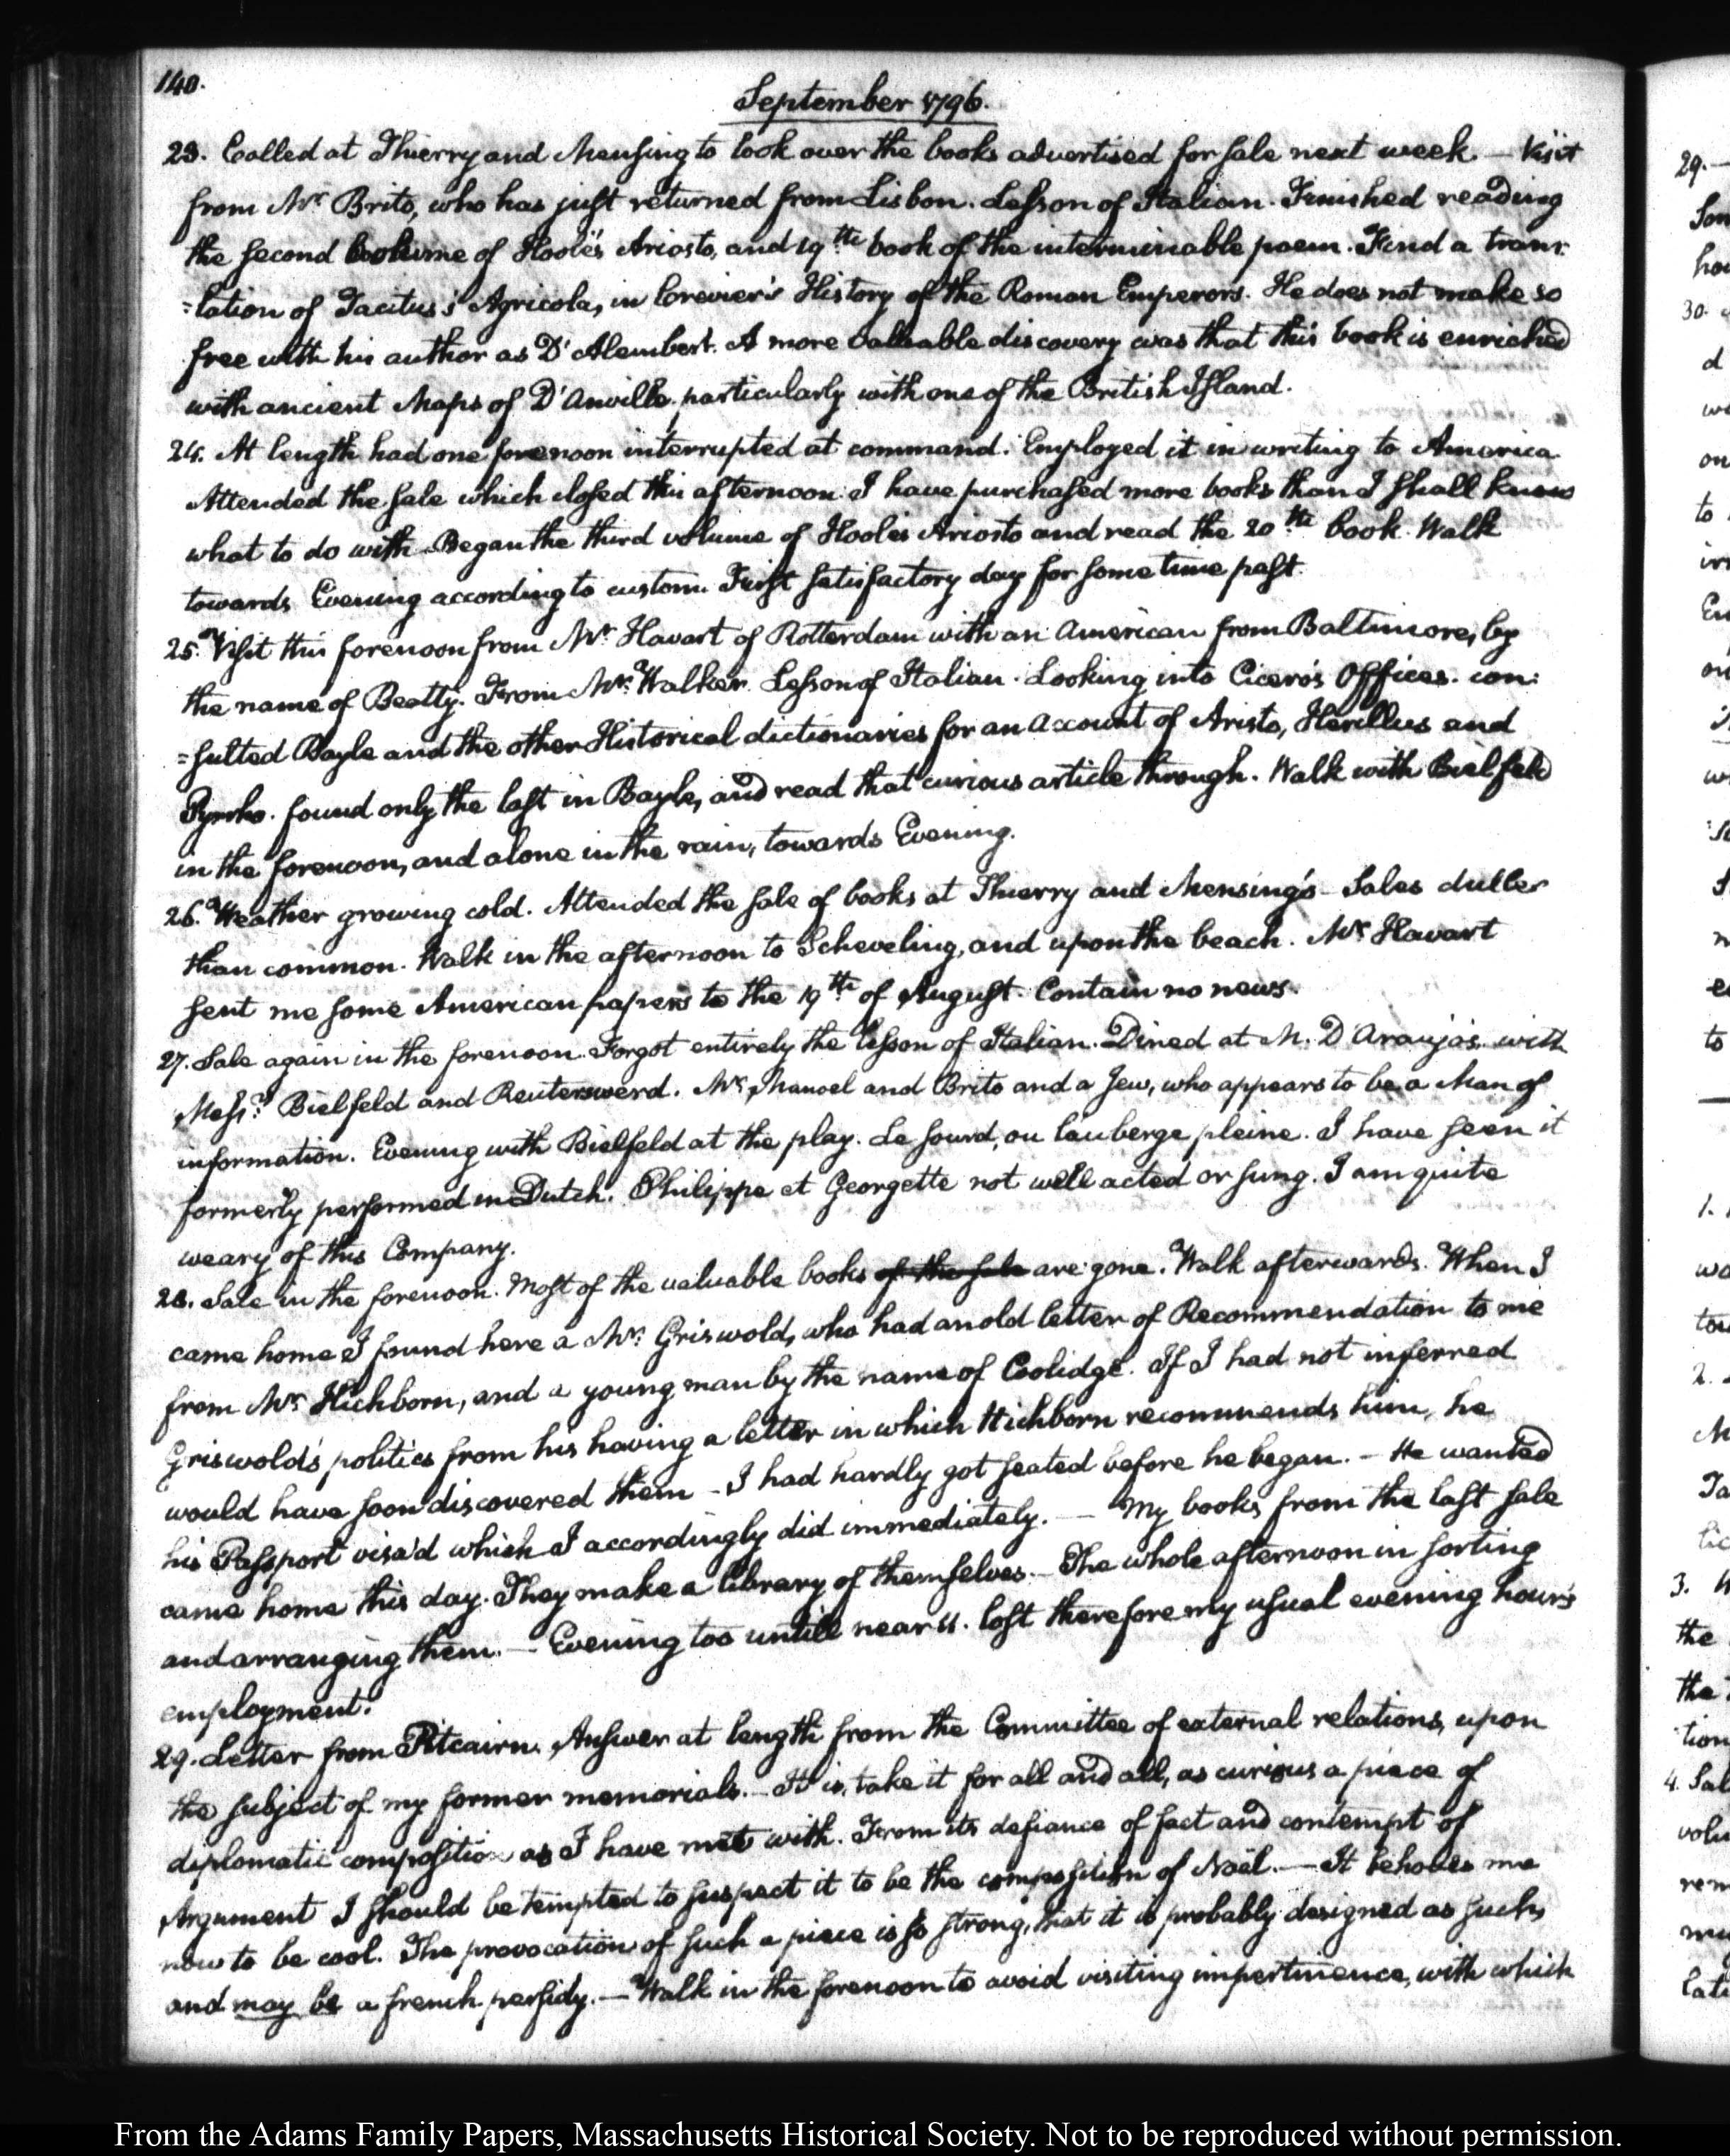 140.
September 1796.
23. Called at Thierry and Mensing to look over the books advertised for sale next week — Visit
from Mr. Brito, who has just returned from Lisbon. Lesson of Italian. Finished reading
the second volume of Hoole's Ariosto, and 19th book of the interminable poem. Find a trans:
=lation of Tacitus's Agricola, in Crevier's History of the Roman Emperors. He does not make so
free with his author as D'Alembert. A more valuable discovery was that this book is enriched
with ancient Maps of D'Anville particularly with one of the British Island.
24. At length had one forenoon interrupted at command. Employed it in writing to America
Attended the sale which closed this afternoon. I have purchased more books than I shall know
what to do with. Began the third volume of Hoole's Ariosto and read the 20th book. Walk
towards Evening according to custom. First satisfactory day for some time past.
25. Visit this forenoon from Mr. Havart of Rotterdam with an American from Baltimore, by
the name of Beatty. From Mr. Walker. Lesson of Italian. Looking into Cicero's Offices. con:
=sulted Bayle and the other Historical dictionaries for an account of Aristo, Herillus and
Pyrrho. found only the last in Bayle, and read that curious article through. Walk with Bielfeld
in the forenoon, and alone in the rain, towards Evening.
26. Weather growing cold. Attended the sale of books at Thierry and Mensing's — Sales duller
than common. Walk in the afternoon to Scheveling, and upon the beach. Mr. Havart
sent me some American papers to the 19th of August. Contain no news.
27. Sale again in the forenoon. Forgot entirely the lesson of Italian. Dined at M. D'Araujo's. with
Messrs. Bielfeld and Reuterswerd. Mr. Manoel and Brito and a Jew, who appears to be a Man of
information. Evening with Bielfeld at the play. Le sourd, ou l'auberge pleine. I have seen it
formerly performed in Dutch. Philippe et Georgette not well acted or sung. I am quite
weary of this Company.
28. Sale in the forenoon. Most of the valuable books of the sale are gone. Walk afterwards. When I
came home I found here a Mr. Griswold, who had an old letter of Recommendation to me
from Mr. Hichborn, and a young man by the name of Coolidge. If I had not inferred
Griswold's politics from his having a letter in which Hichborn recommends him, he
would have soon discovered them — I had hardly got seated before he began. — He wanted
his Passport visa'd which I accordingly did immediately. — My books from the last sale
came home this day. They make a library of themselves. — The whole afternoon in sorting
and arranging them. — Evening too untill near 11. lost therefore my usual evening hour's
employment.
29. Letter from Pitcairn. Answer at length from the Committee of external relations, upon
the subject of my former memorials. — It is, take it for all and all, as curious a piece of
diplomatic composition as I have met with. From its defiance of fact and contempt of
Argument I should be tempted to suspect it to be the composition of Noël. — It behoves me
now to be cool. The provocation of such a piece is so strong, that it is probably designed as such,
and may be a french perfidy. — Walk in the forenoon to avoid visiting impertinence, with which
From the Adams Family Papers, Massachusetts Historical Society. Not to be reproduced without permission.